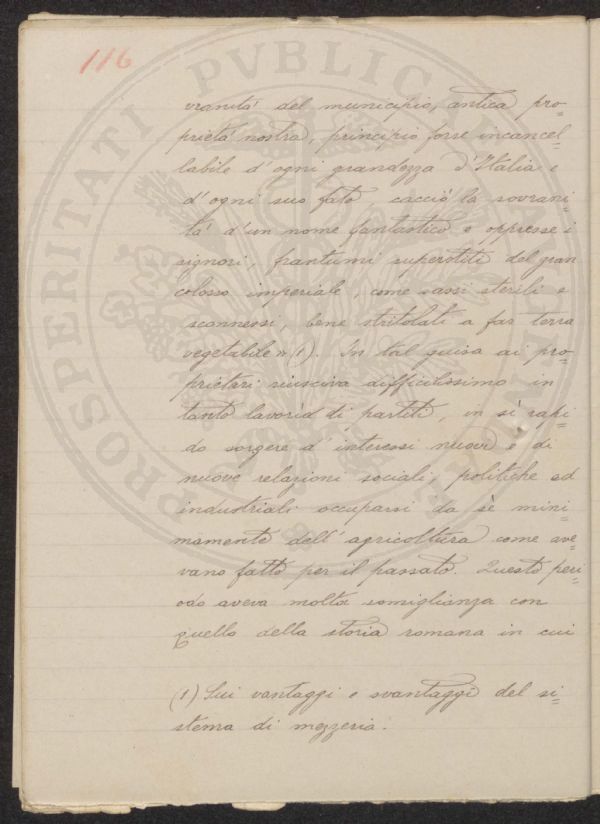 116
vranità del municipio, antica pro=
prietà nostra, principio forse incancel=
labile d'ogni grandezza d'Italia e
d'ogni suo fato, cacciò la sovrani=
tà d'un nome fantastico e oppresse i
signori, frantumi superstiti del gran
colosso imperiale, come sassi sterili e
sconnessi, bene stritolati a far terra
vegetabile » (1). In tal guisa ai pro=
prietari riusciva difficilissimo in
tanto lavorìo di partiti, in sì rapi=
do sorgere d'interessi nuovi e di
nuove relazioni sociali, politiche ed
industriali occuparsi da sè mini=
mamente dell'agricoltura come ave=
vano fatto per il passato. Questo peri=
odo aveva molta somiglianza con
quello della storia romana in cui
(1) Sui vantaggi e svantaggi del si=
stema di mezzeria.
PROSPERITATI PVBLICAE AVGENDAE